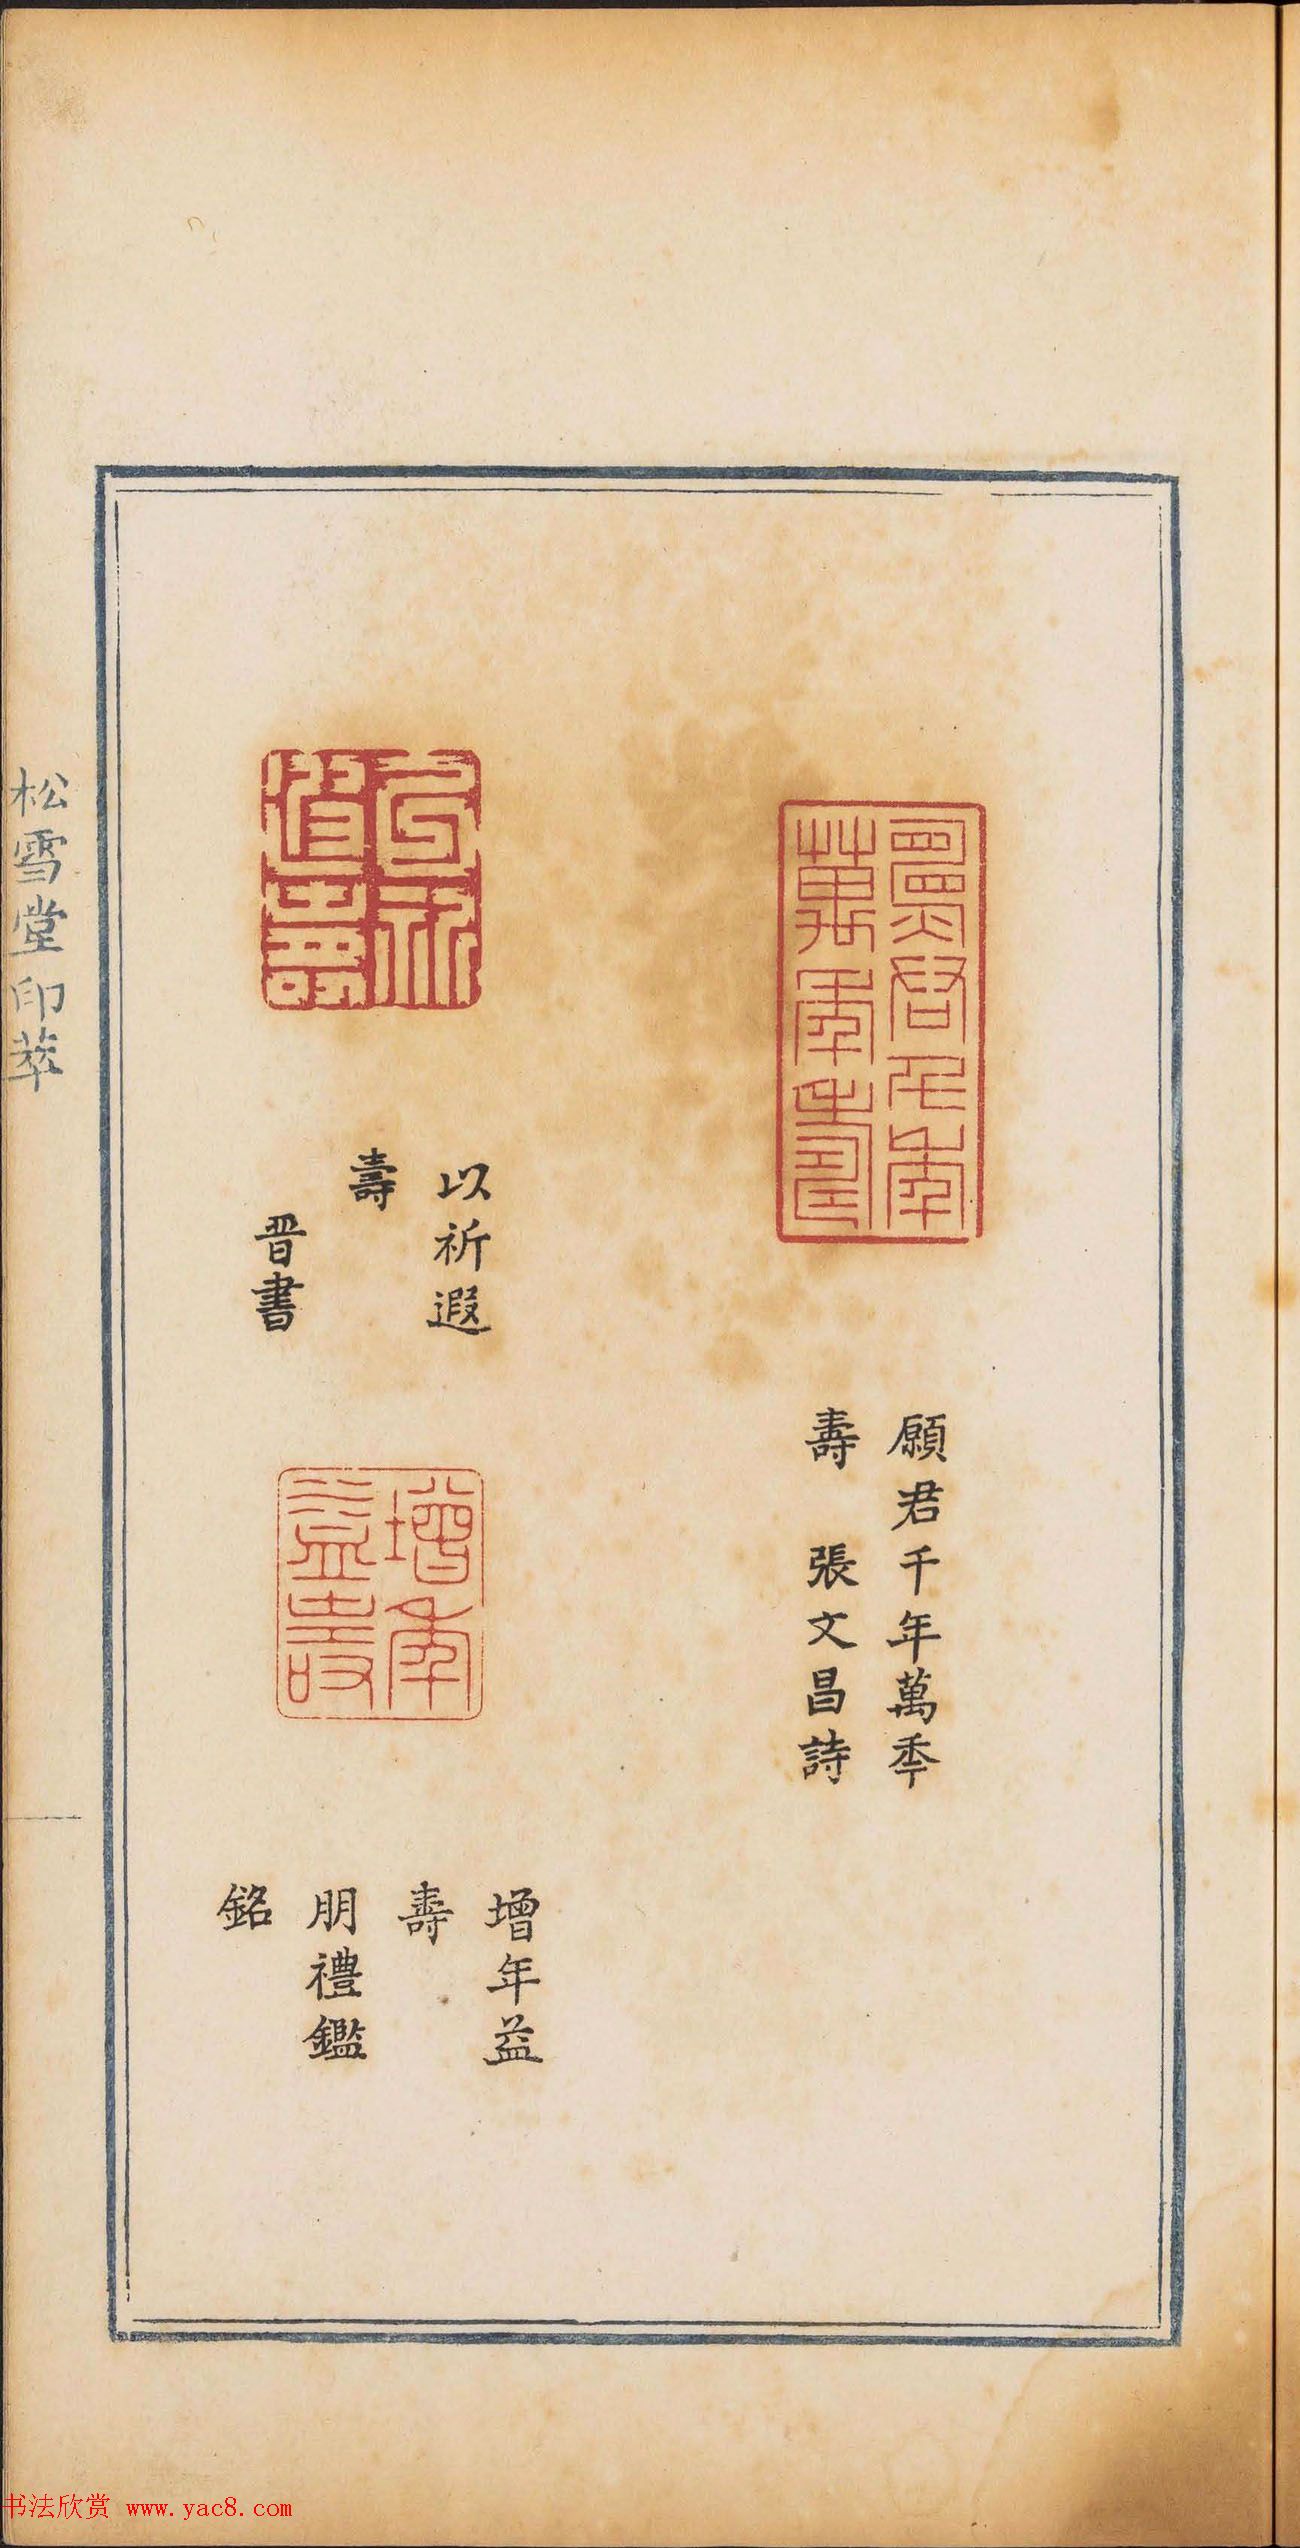 願君千年萬季
壽 張文昌詩
以祈遐
壽
晉書
增年益壽
增年益
壽
朋禮鑑
銘
松雪堂印萃
书法欣赏 www.yac8.com